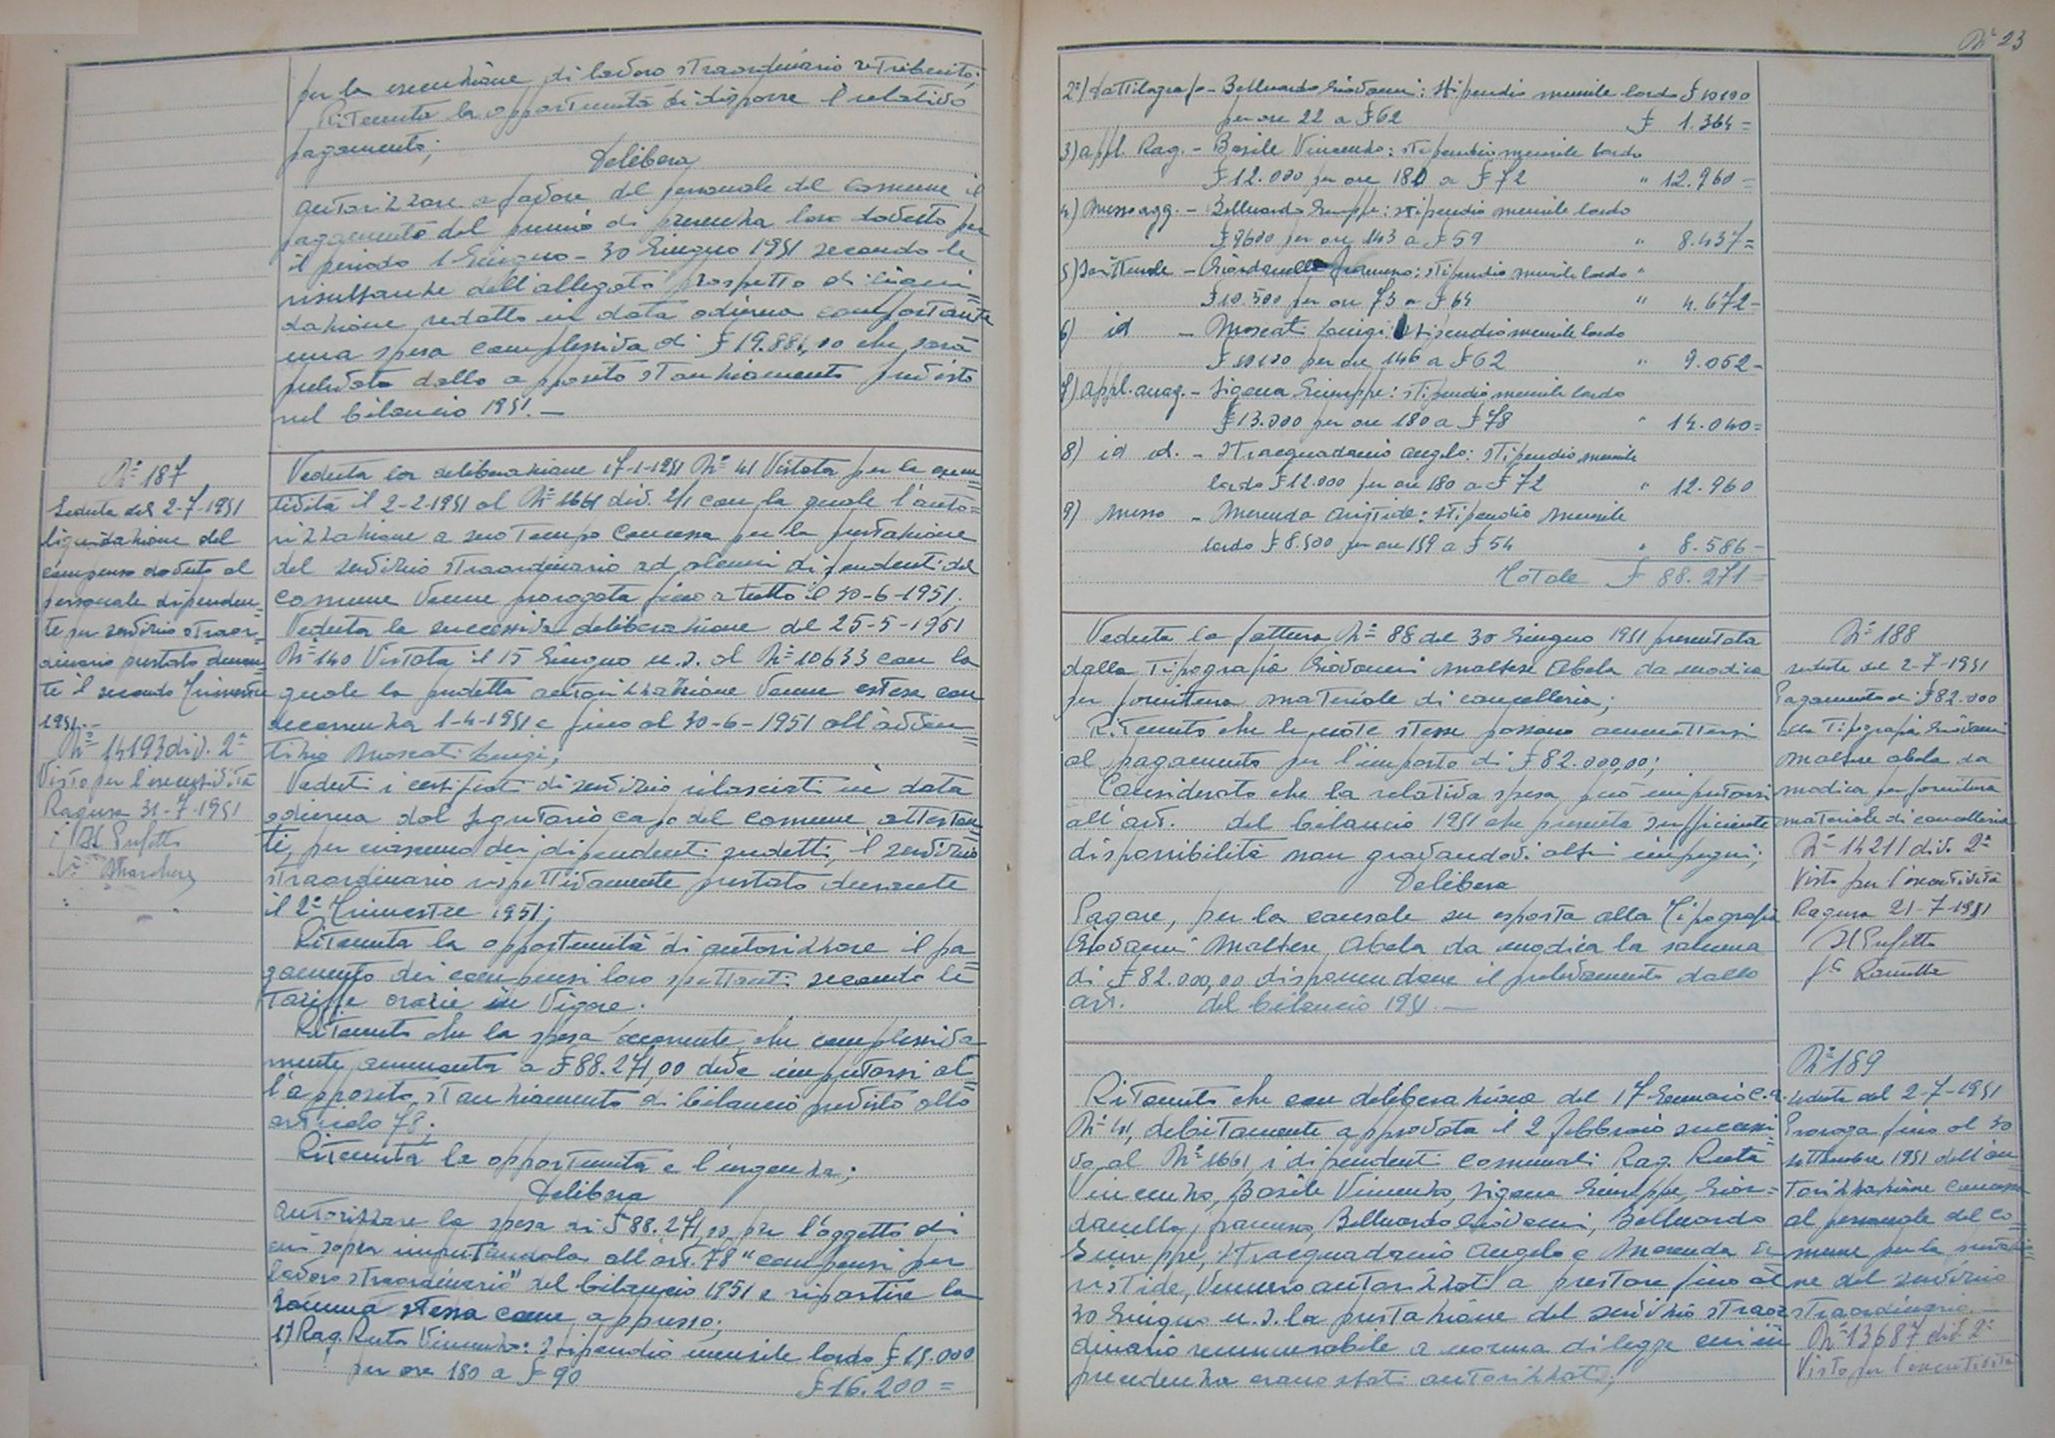 per la esecuzione di lavoro straordinario retribuito;
Ritenuta la opportunità di disporre il relativo
pagamento;
Delibera
autorizzare a favore del personale del comune il
pagamento del premio di presenza loro dovuto per
il periodo 1 Giugno - 30 Giugno 1951 secondo le
risultanze dell'allegato prospetto di liqui=
dazione redatto in data odierna comportante
una spesa complessiva di £ 19.881,00 che sarà
prelevata dallo apposito stanziamento previsto
nel bilancio 1951. —
Nº 187
Seduta del 2-7-1951
liquidazione del
compenso dovuto al
personale dipenden=
te per servizio straor=
dinario prestato duran=
te il secondo Trimestre
1951. -
Nº 14193 div. 2ª
Visto per l'esecutività
Ragusa 31-7-1951
Il Prefetto
Veduta la deliberazione 17-1-1951 Nº 41 Vistata per la esecu=
tività il 2-2-1951 al Nº 1661 div. 2/1 con la quale l'auto=
rizzazione a suo tempo concessa per la prestazione
del servizio straordinario ad alcuni dipendenti del
comune Venne prorogata fino a tutto il 30-6-1951.
Veduta la successiva deliberazione del 25-5-1951
Nº 140 Vistata il 15 Giugno u.s. al Nº 10633 con la
quale la predetta autorizzazione Venne estesa con
decorrenza 1-4-1951 e fino al 30-6-1951 all'avven=
tizio Moscati Luigi;
Veduti i certificati di servizio rilasciati in data
odierna dal Segretario Capo del Comune attestan=
ti, per ciascuno dei dipendenti predetti, il servizio
straordinario rispettivamente prestato durante
il 2º Trimestre 1951;
Ritenuta la opportunità di autorizzare il pa=
gamento dei compensi loro spettanti secondo le
Tariffe orarie in Vigore.
Ritenuto che la spesa occorrente, che complessiva=
mente ammonta a £ 88.271,00 deve imputarsi al=
l'apposito stanziamento di bilancio previsto allo
articolo 78;
Ritenuta la opportunità e l'urgenza;
Delibera
autorizzare la spesa di £ 88.271,00 per l'oggetto di
cui sopra imputandola all'art. 78 "compensi per
lavoro straordinario" del bilancio 1951 e ripartire la
somma stessa come appresso;
1) Rag. Ruta Vincenzo: Stipendio mensile lordo £ 15.000
per ore 180 a £ 90 £ 16.200 =
Nº 23
2º) Dattilografo - Belluardo Giovanni: stipendio mensile lordo £ 10100
per ore 22 a £ 62 £ 1.364 =
3) appl. Rag. - Basile Vincenzo: stipendio mensile lordo
£ 12.000 per ore 180 a £ 72 " 12.960 =
4) Messo agg. - Belluardo Giuseppe: stipendio mensile lordo
£ 9600 per ore 143 a £ 59 " 8.437 =
5) Scritturale - Giordanella Francesco: stipendio mensile lordo "
£ 10.500 per ore 73 a £ 64 " 4.672 -
6) id - Moscati Luigi stipendio mensile lordo
£ 10100 per ore 146 a £ 62 " 9.052 -
7) appl. anag. - Sigona Giuseppe: stipendio mensile lordo
£ 13.000 per ore 180 a £ 78 " 14.040 =
8) id id. - Stracquadanio Angelo: stipendio mensile
lordo £ 12.000 per ore 180 a £ 72 " 12.960
9) Messo - Merenda Aristide: stipendio mensile
lordo £ 8.500 per ore 159 a £ 54 " 8.586 -
Totale £ 88.271 =
Veduta la fattura Nº 88 del 30 Giugno 1951 presentata
dalla Tipografia Giovanni Maltese Abela da Modica
per fornitura materiale di cancelleria;
Ritenuto che le note stesse possono ammettersi
al pagamento per l'importo di £ 82.000,00;
Considerato che la relativa spesa può imputarsi
all'art. del bilancio 1951 che presenta sufficiente
disponibilità non gravandovi altri impegni;
Delibera
Pagare, per la causale su esposta alla Tipografia
Giovanni Maltese Abela da Modica la somma
di £ 82.000,00 disponendone il prelevamento dallo
art. del bilancio 1951. —
Nº 188
seduta del 2-7-1951
Pagamento di £ 82.000
alla Tipografia Giovanni
Maltese Abela da
Modica per fornitura
materiale di cancelleria
Nº 14211 div. 2ª
Visto per l'esecutività
Ragusa 21-7-1951
Il Prefetto
Ritenuto che con deliberazione del 17 Gennaio c.a.
Nº 41, debitamente approvata il 2 febbraio successi=
vo al Nº 1661, i dipendenti comunali Rag. Ruta
Vincenzo, Basile Vincenzo, Sigona Giuseppe, Gior=
danella Francesco, Belluardo Giovanni, Belluardo
Giuseppe, Stracquadanio Angelo e Merenda A=
ristide, Vennero autorizzati a prestare fino al
30 Giugno u.s. la prestazione del servizio straor=
dinario remunerabile a norma di legge cui in
precedenza erano stati autorizzati;
Nº 189
seduta del 2-7-1951
Proroga fino al 30
settembre 1951 dell'au=
torizzazione concessa
al personale del co=
mune per la prestazio=
ne del servizio
straordinario. —
Nº 13687 div. 2ª
Visto per l'esecutività